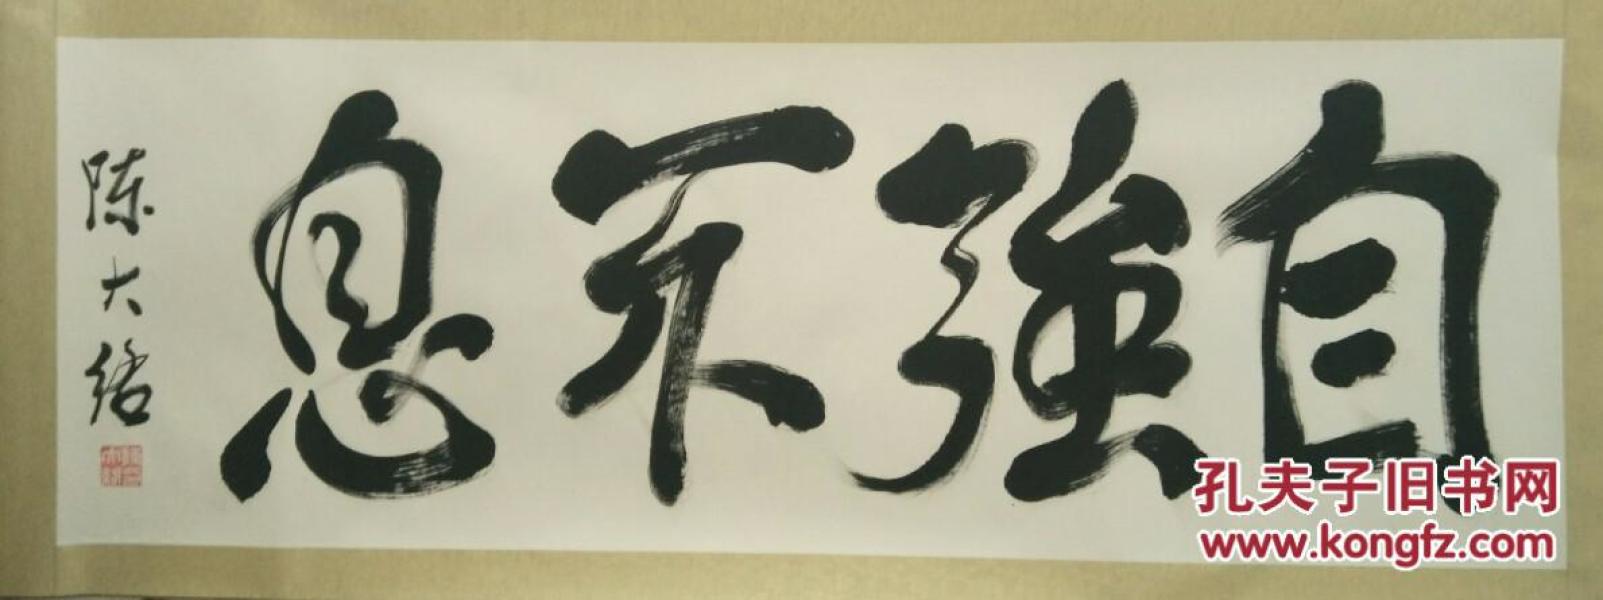 自強不息
陈大络
孔夫子旧书网
www.kongfz.com